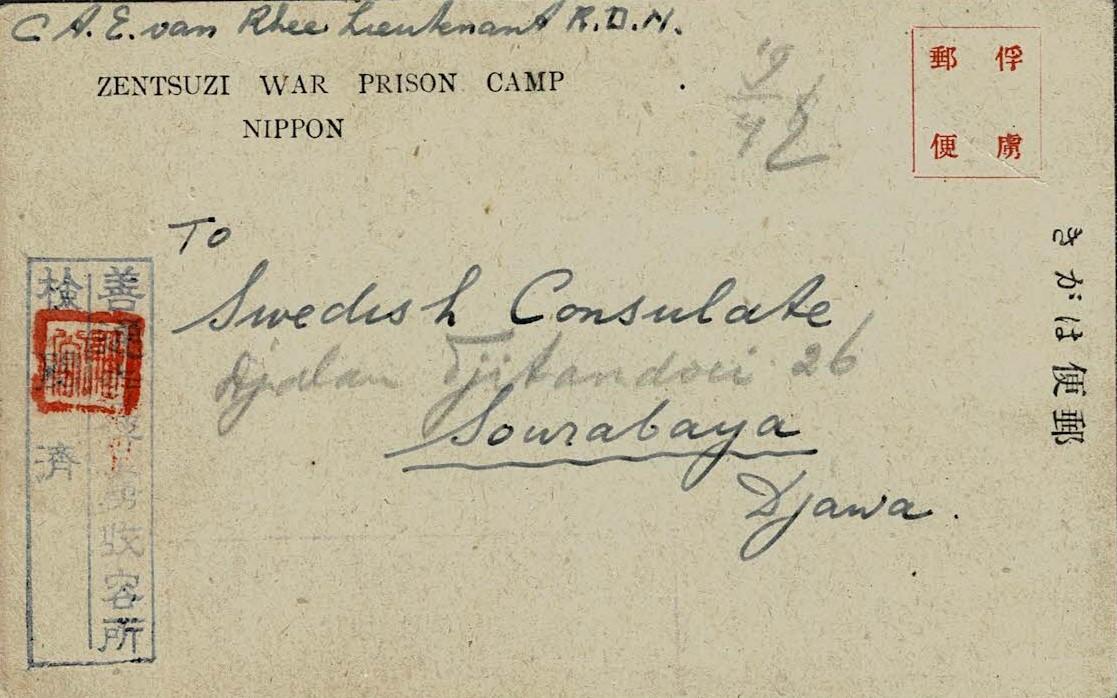 C A. E. van Rhee Lieutenant R.D.N.
ZENTSUZI WAR PRISON CAMP
NIPPON
俘虜
郵便
郵便はがき
To
Swedish Consulate
Djalan 26
Sourabaya
Djawa.
善通寺俘虜收容所
検閲濟